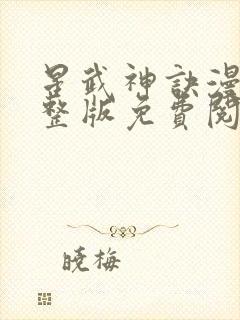 星武神訣漫
整版免費閱
曉梅